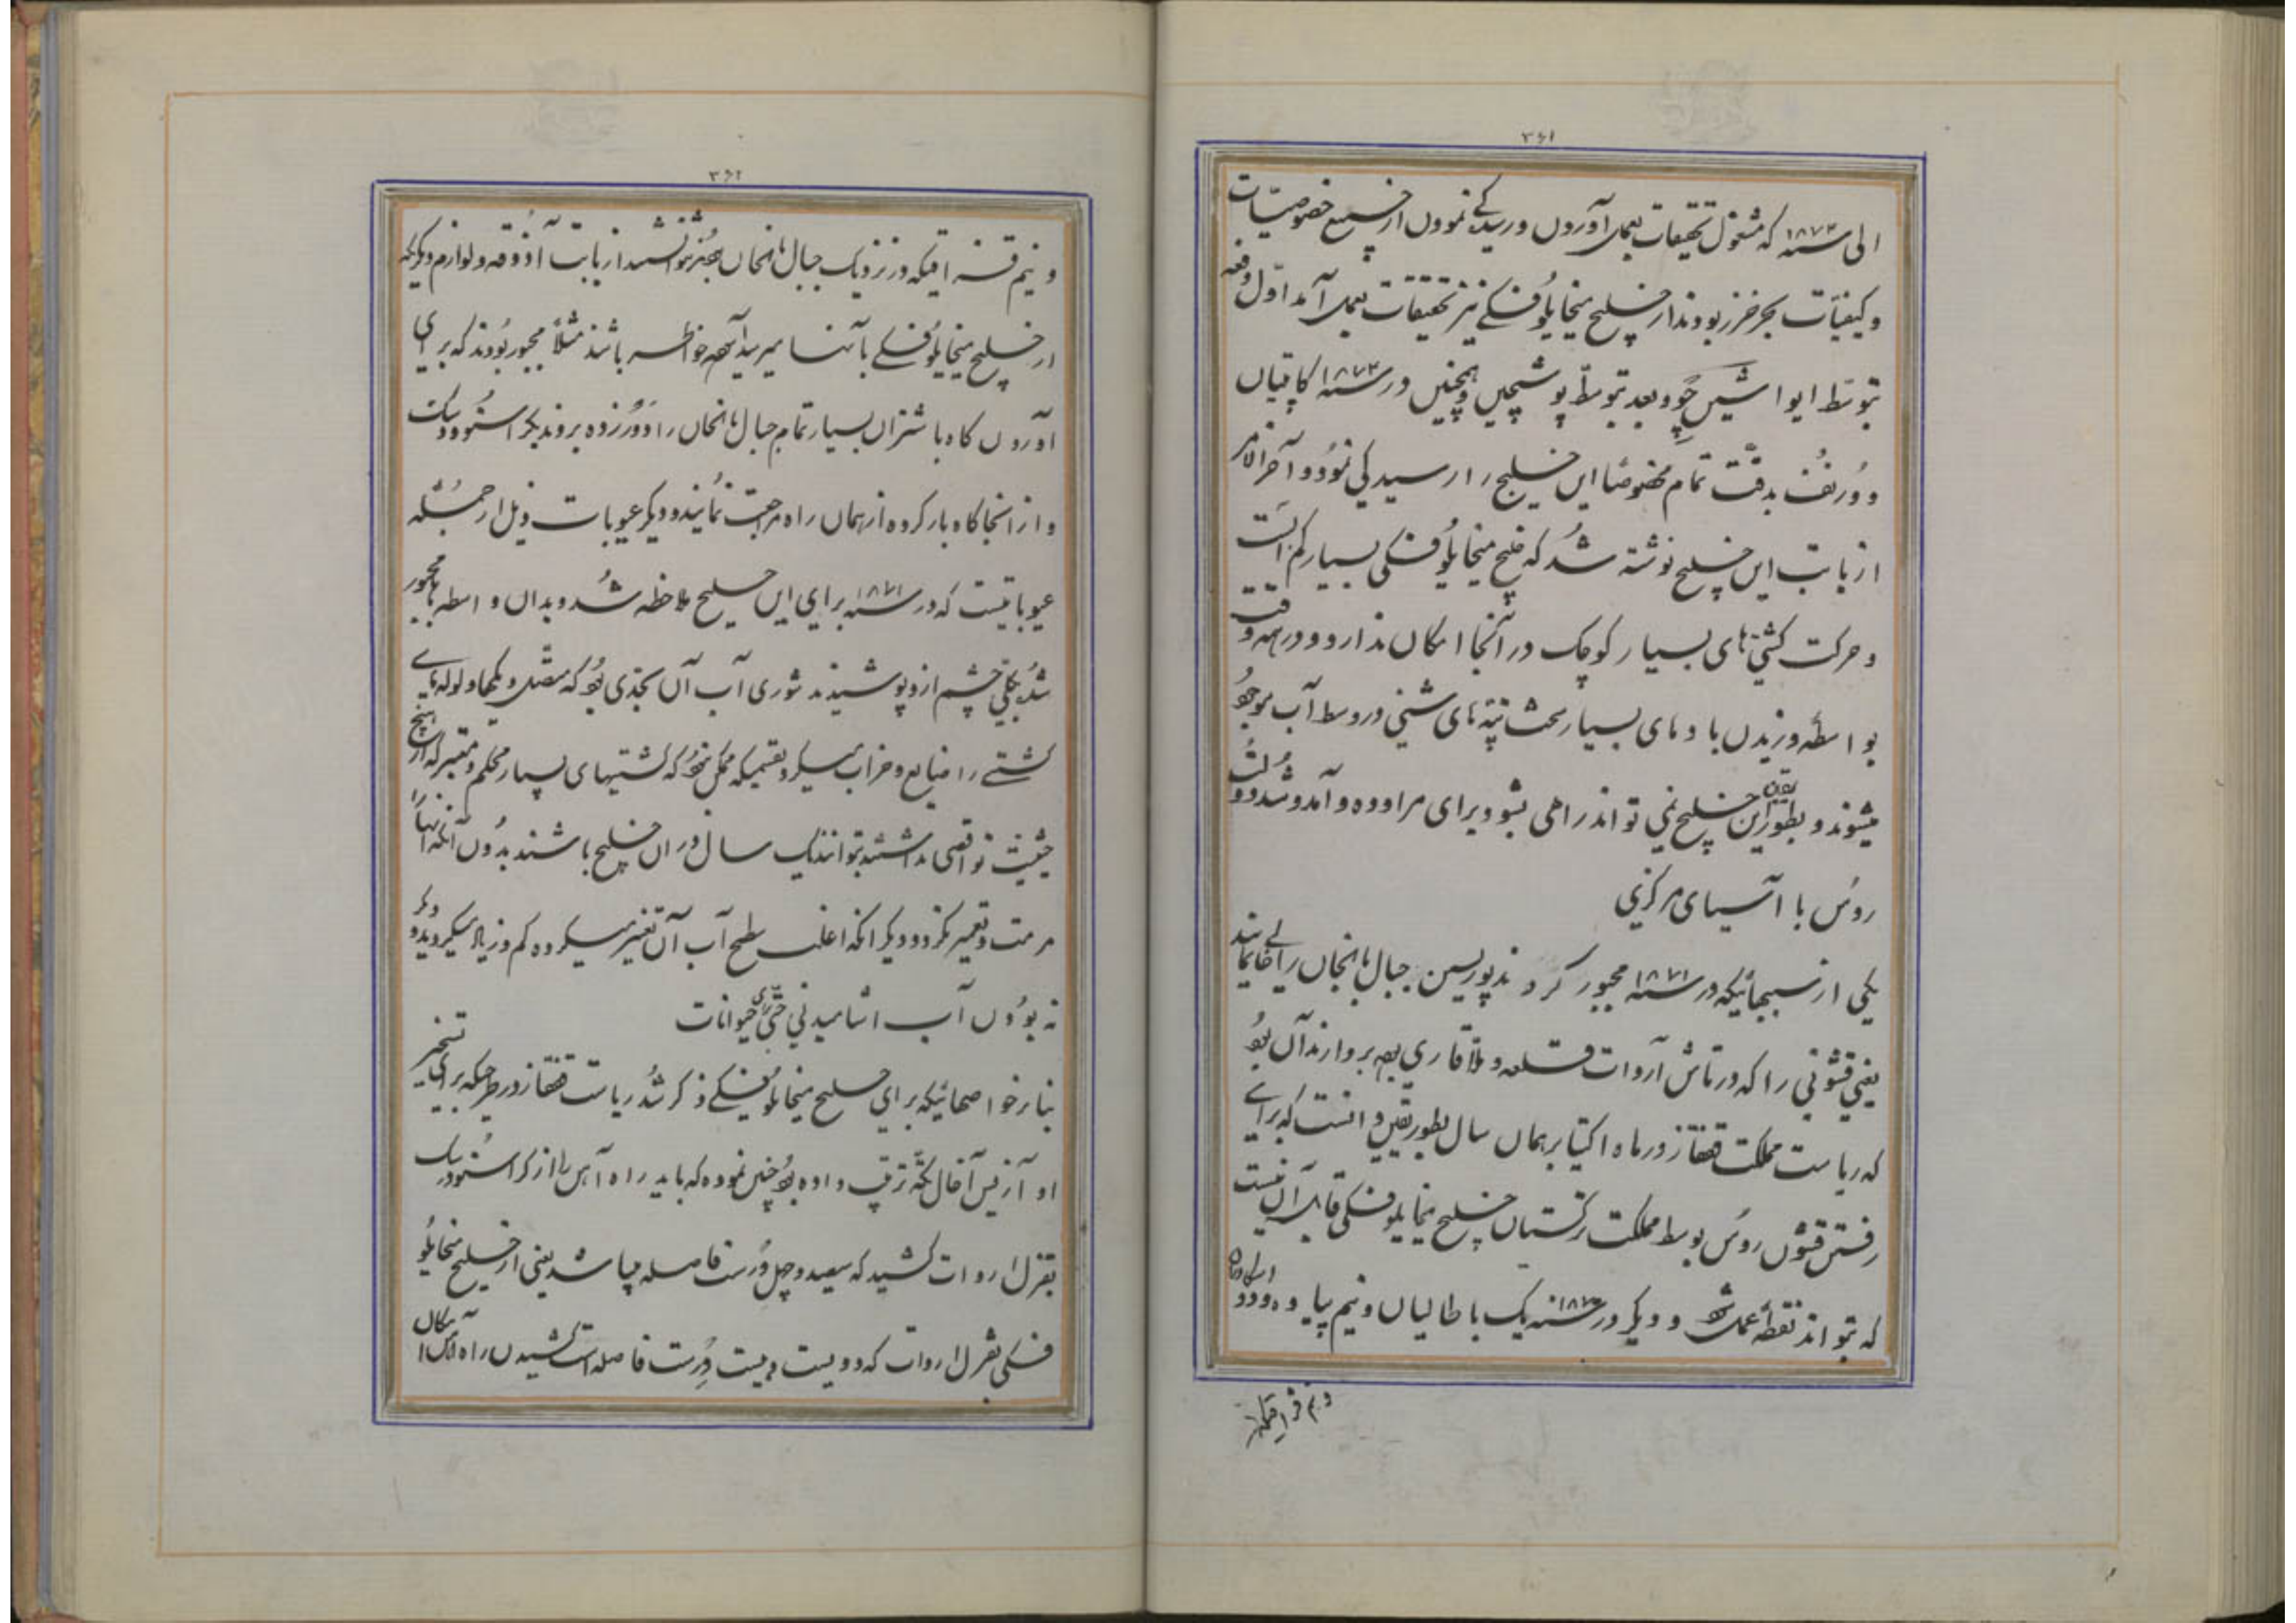 ۳۶۱
الی سنه ۱۸۷۳ که مشغول تحقیقات بعمل آوردن و رسیدگی نمودن از جمیع خصوصیات
و کیفیات بحر خزر بودند از خلیج میخایلوفسکی نیز تحقیقات بعمل آمد اول دفعه
بتوسط ایواشین و بعد بتوسط پوشچین و همچنین در سنه ۱۸۷۳ کاپتیان
بدقت تمام مخصوصا این خلیج را رسیدگی نمود و آخرالامر
از بابت این خلیج نوشته شد که خلیج میخایلوفسکی بسیار کم آبست
و حرکت کشتی های بسیار کوچک در آنجا امکان ندارد و در همه وقت
بواسطه وزیدن بادهای بسیار سخت تپه های شنی در وسط آب موجود
میشوند و بطور یقین این خلیج نمی تواند راهی بشود برای مراوده و آمد و شد دولت
روس با آسیای مرکزی
یکی از سببهائیکه در سنه ۱۸۷۱ مجبور کردند پوریسن جبال بالخان را خالی نمایند
یعنی قشونی را که در تاش آروات قلعه و ملا قاری بود بردارند آن بود
که ریاست مملکت قفقاز در ماه اکتیابر همان سال بطور یقین دانست که برای
رفتن قشون روس بوسط مملکت ترکستان خلیج میخایلوفسکی قابل آن نیست
که بتواند نقطه عمل شود و دیگر در سنه ۱۸۷۰ یک باطالیان و نیم پیاده و دو
و نیم قزاقیکه
۳۶۲
و نیم قزاقیکه در نزدیک جبال بالخان بودند نتوانستند از بابت آذوقه و لوازم دیگر که
از خلیج میخایلوفسکی بآنها میرسید آسوده خاطر باشند مثلاً مجبور بودند که برای
آوردن کاه با شتران بسیار تمام جبال بالخان را دور زده بروند بکراسنوودسک
و از آنجا کاه بار کرده از همان راه مراجعت نمایند و دیگر عیوبات ذیل از جمله
عیوباتیست که در سنه ۱۸۷۱ برای این خلیج ملاحظه شد و بدان واسطه مجبور
شد بکلی چشم از او پوشیدند شوری آب آن بحدی بود که متصل دیگها و لوله های
کشتی را ضایع و خراب میکرد بقسمیکه ممکن نبود که کشتیهای بسیار محکم و معتبر که از هیچ
حیثیت نواقصی نداشتند بتوانند یک سال در آن خلیج باشند بدون آنکه آنها را
مرمت و تعمیر نکرد و دیگر آنکه اغلب سطح آب آن تغییر میکرده کم و زیاد میگردید و دیگر
نه بودن آب آشامیدنی حتی برای حیوانات
بنابر خواصهائیکه برای خلیج میخایلوفسکی ذکر شد ریاست قفقاز در طرحیکه برای تسخیر
او آزیس آخال تکه ترتیب داده بود چنین نموده که باید راه آهن را از کراسنوودسک
بقزل اروات کشید که سیصد و چهل ورست فاصله میباشد یعنی از خلیج میخایلو
فسکی بقزل اروات که دویست و بیست ورست فاصله است کشیدن راه آهن